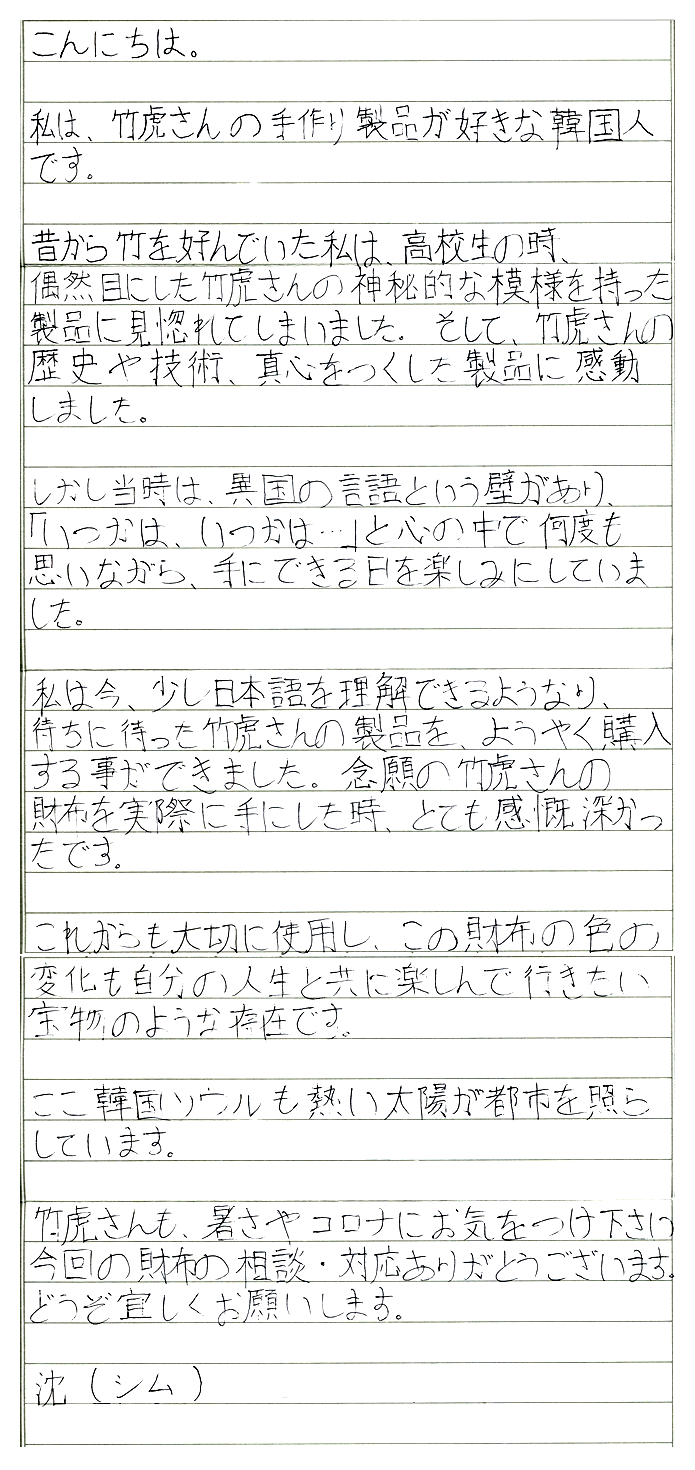 こんにちは。
私は、竹虎さんの手作り製品が好きな韓国人
です。
昔から竹を好んでいた私は、高校生の時、
偶然目にした竹虎さんの神秘的な模様を持った
製品に見惚れてしまいました。そして、竹虎さんの
歴史や技術、真心をつくした製品に感動
しました。
しかし当時は、異国の言語という壁があり、
「いつかは、いつかは…」と心の中で何度も
思いながら、手にできる日を楽しみにしていま
した。
私は今、少し日本語を理解できるようなり、
待ちに待った竹虎さんの製品を、ようやく購入
する事ができました。念願の竹虎さんの
財布を実際に手にした時、とても感慨深かっ
たです。
これからも大切に使用し、この財布の色の
変化も自分の人生と共に楽しんで行きたい
宝物のような存在です。
ここ韓国ソウルも熱い太陽が都市を照ら
しています。
竹虎さんも、暑さやコロナにお気をつけ下さい
今回の財布の相談・対応ありがとうございます。
どうぞ宜しくお願いします。
沈(シム)